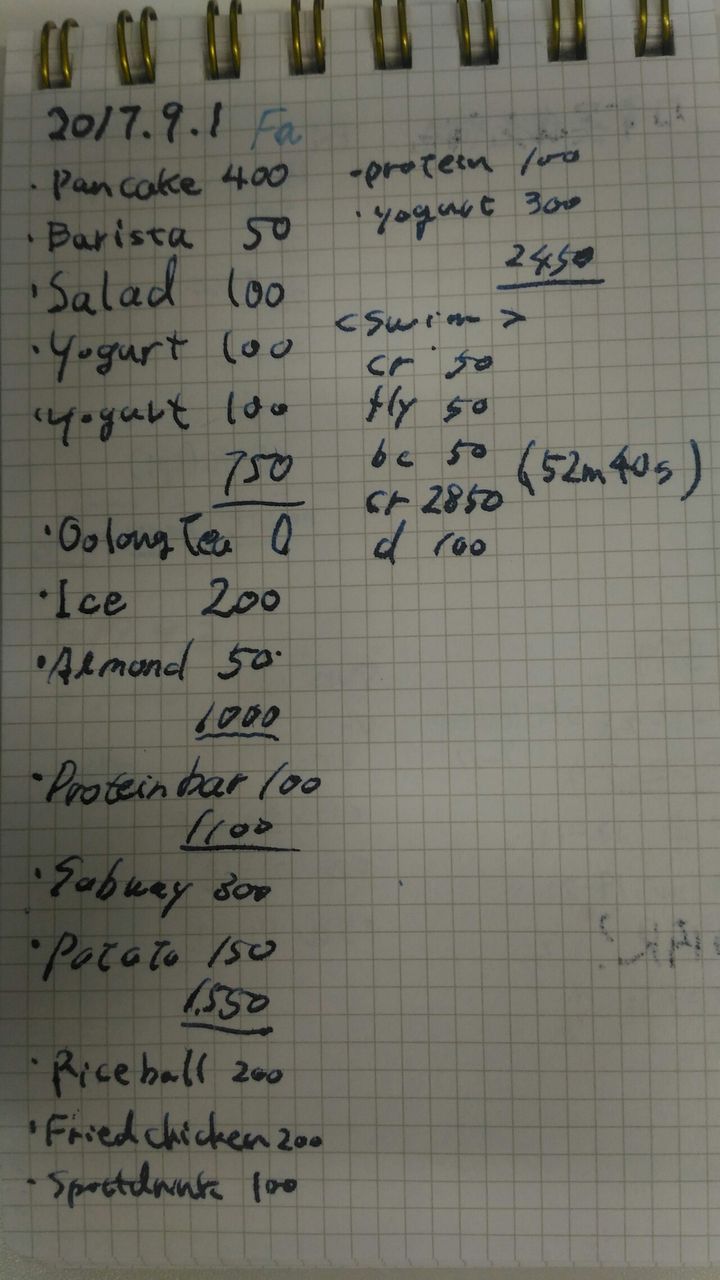 2017.9.1 Fa
· Pancake 400
· Barista 50
· Salad 100
· Yogurt 100
· Yogurt 100
750
· Oolong Tea 0
· Ice 200
· Almond 50
1000
· Protein bar 100
1100
· Subway 300
· Potato 150
1550
· Rice ball 200
· Fried chicken 200
· 100
· protein 100
· yogurt 300
2450
<Swim>
cr 50
fly 50
bc 50
cr 2850 (52m40s)
d 100